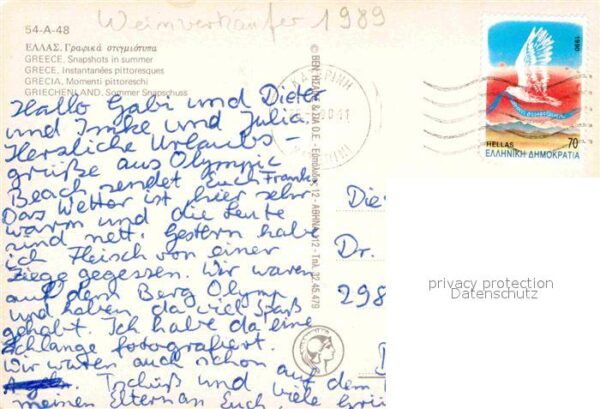 Weinverkäufer 1989
54-A-48
ΕΛΛΑΣ. Γραφικά στιγμιότυπα
GREECE, Snapshots in summer
GRECE, Instantanées pittoresques
GRECIA, Momenti pittoreschi
GRIECHENLAND, Sommer Snapschuss
Hallo Gabi und Dieter
und Imke und Julia.
Herzliche Urlaubs-
grüße aus Olympic
Beach sendet Euch Frank.
Das Wetter ist hier sehr
warm und die Leute
sind nett. Gestern habe
ich Fleisch von einer
Ziege gegessen. Wir waren
auf dem Berg Olymp
und haben da viel Spaß
gehabt. Ich habe da eine
Schlange fotografiert.
Wir waren auch schon auf dem
Tschüß und
meinen Eltern an Euch viele
© BEN. & ΣΙΑ Ο.Ε. - 12 - ΑΘΗΝΑ 112 - Τηλ. 32.45.479
ΚΑΤΕΡΙΝΗ
1990
HELLAS 70
ΕΛΛΗΝΙΚΗ ΔΗΜΟΚΡΑΤΙΑ
Die
Dr.
298
privacy protection
Datenschutz